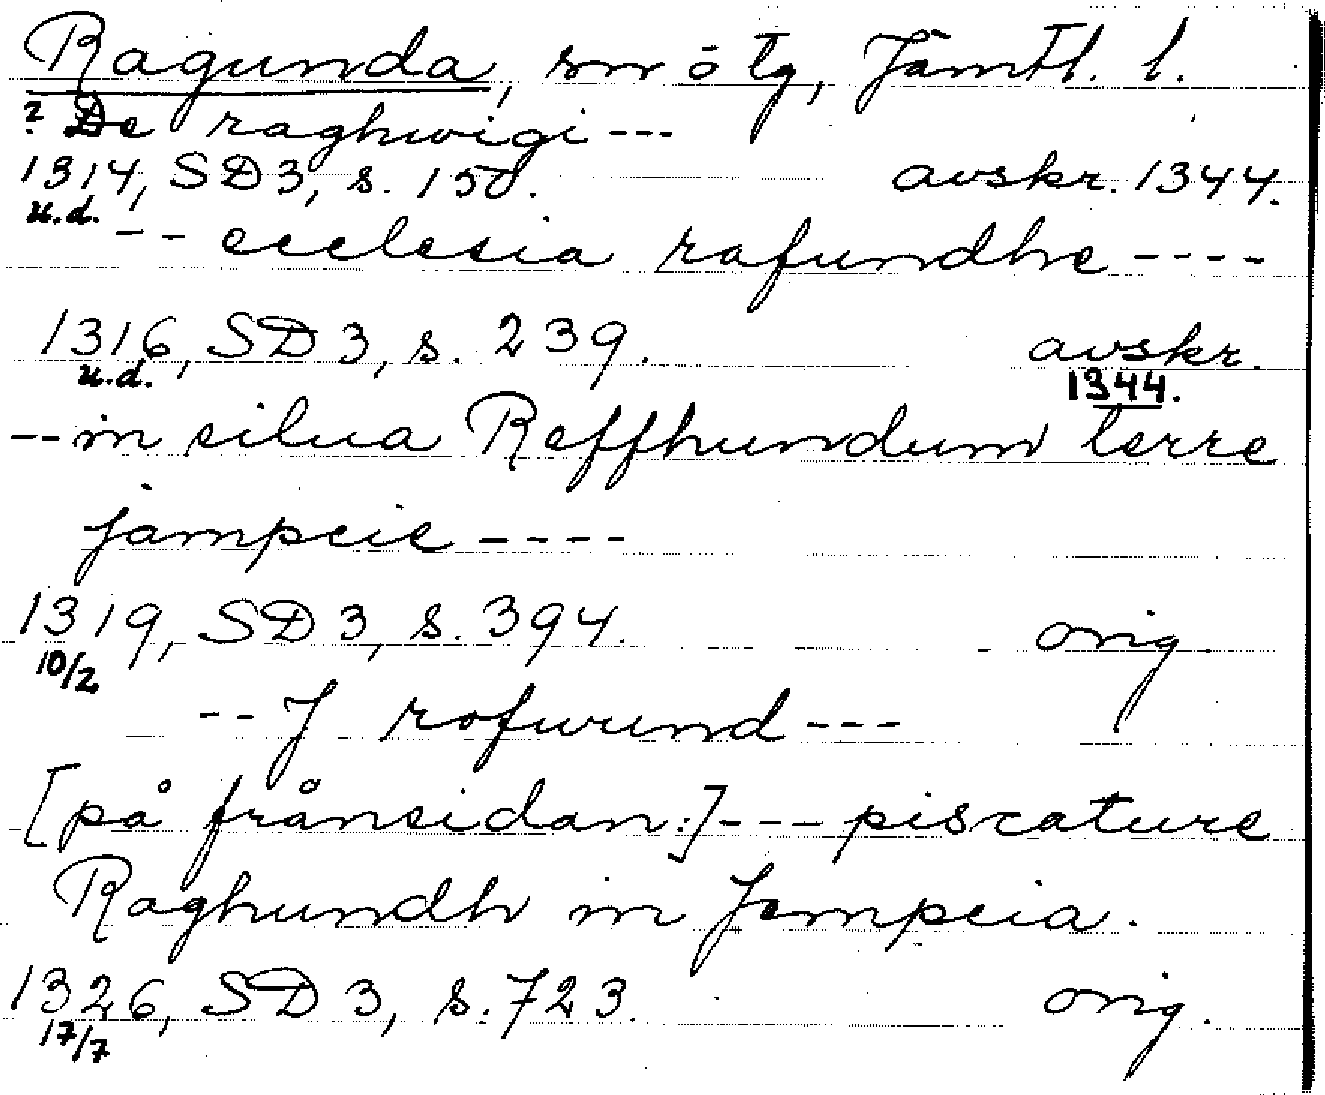 Ragunda, sn o tg, Jämtl. l.
? De raghwigi ---
1314, SD3, s. 150. avskr. 1344.
u.d.
-- ecclesia rafundhe ----
1316, SD 3, s. 239. avskr.
u.d. 1344.
-- in silua Reffhundum terre
jampcie ----
1319, SD 3, s. 394. orig.
10/2
-- J rofwund ---
[på frånsidan:] --- piscature
Raghundh in Jempcia.
1326, SD 3, s. 723. orig.
17/7